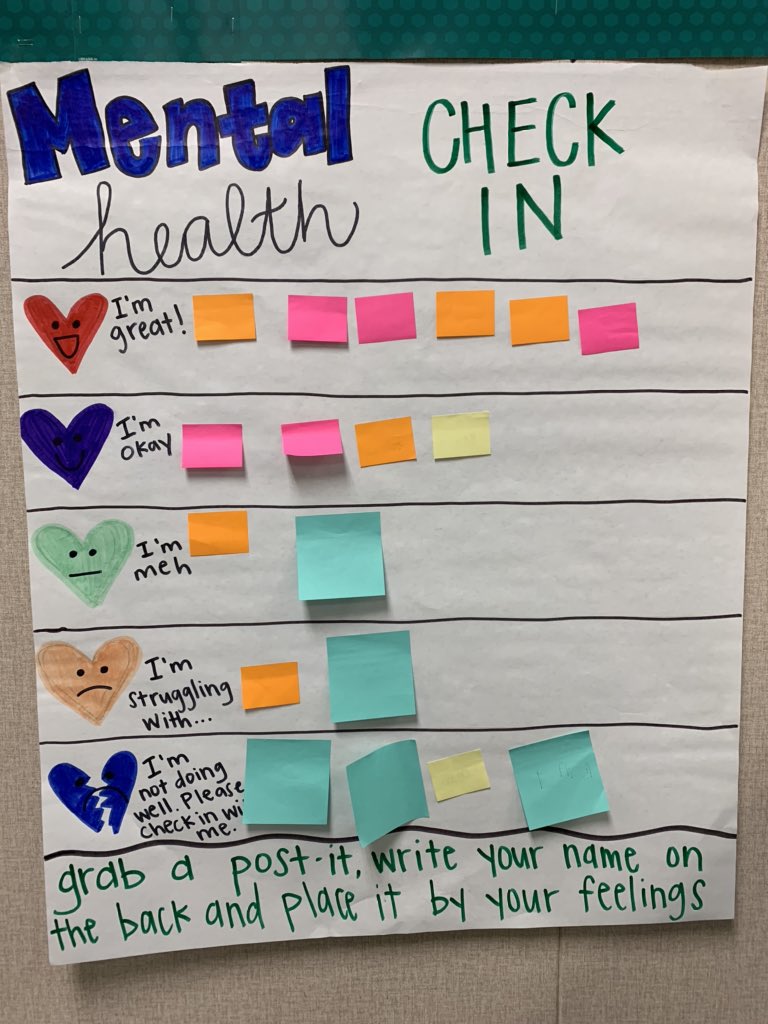 Mental
health
CHECK
IN
I'm
great!
I'm
okay
I'm
meh
I'm
struggling
with...
I'm
not doing
well. Please
check in wi
me.
grab a post-it, write your name on
the back and place it by your feelings